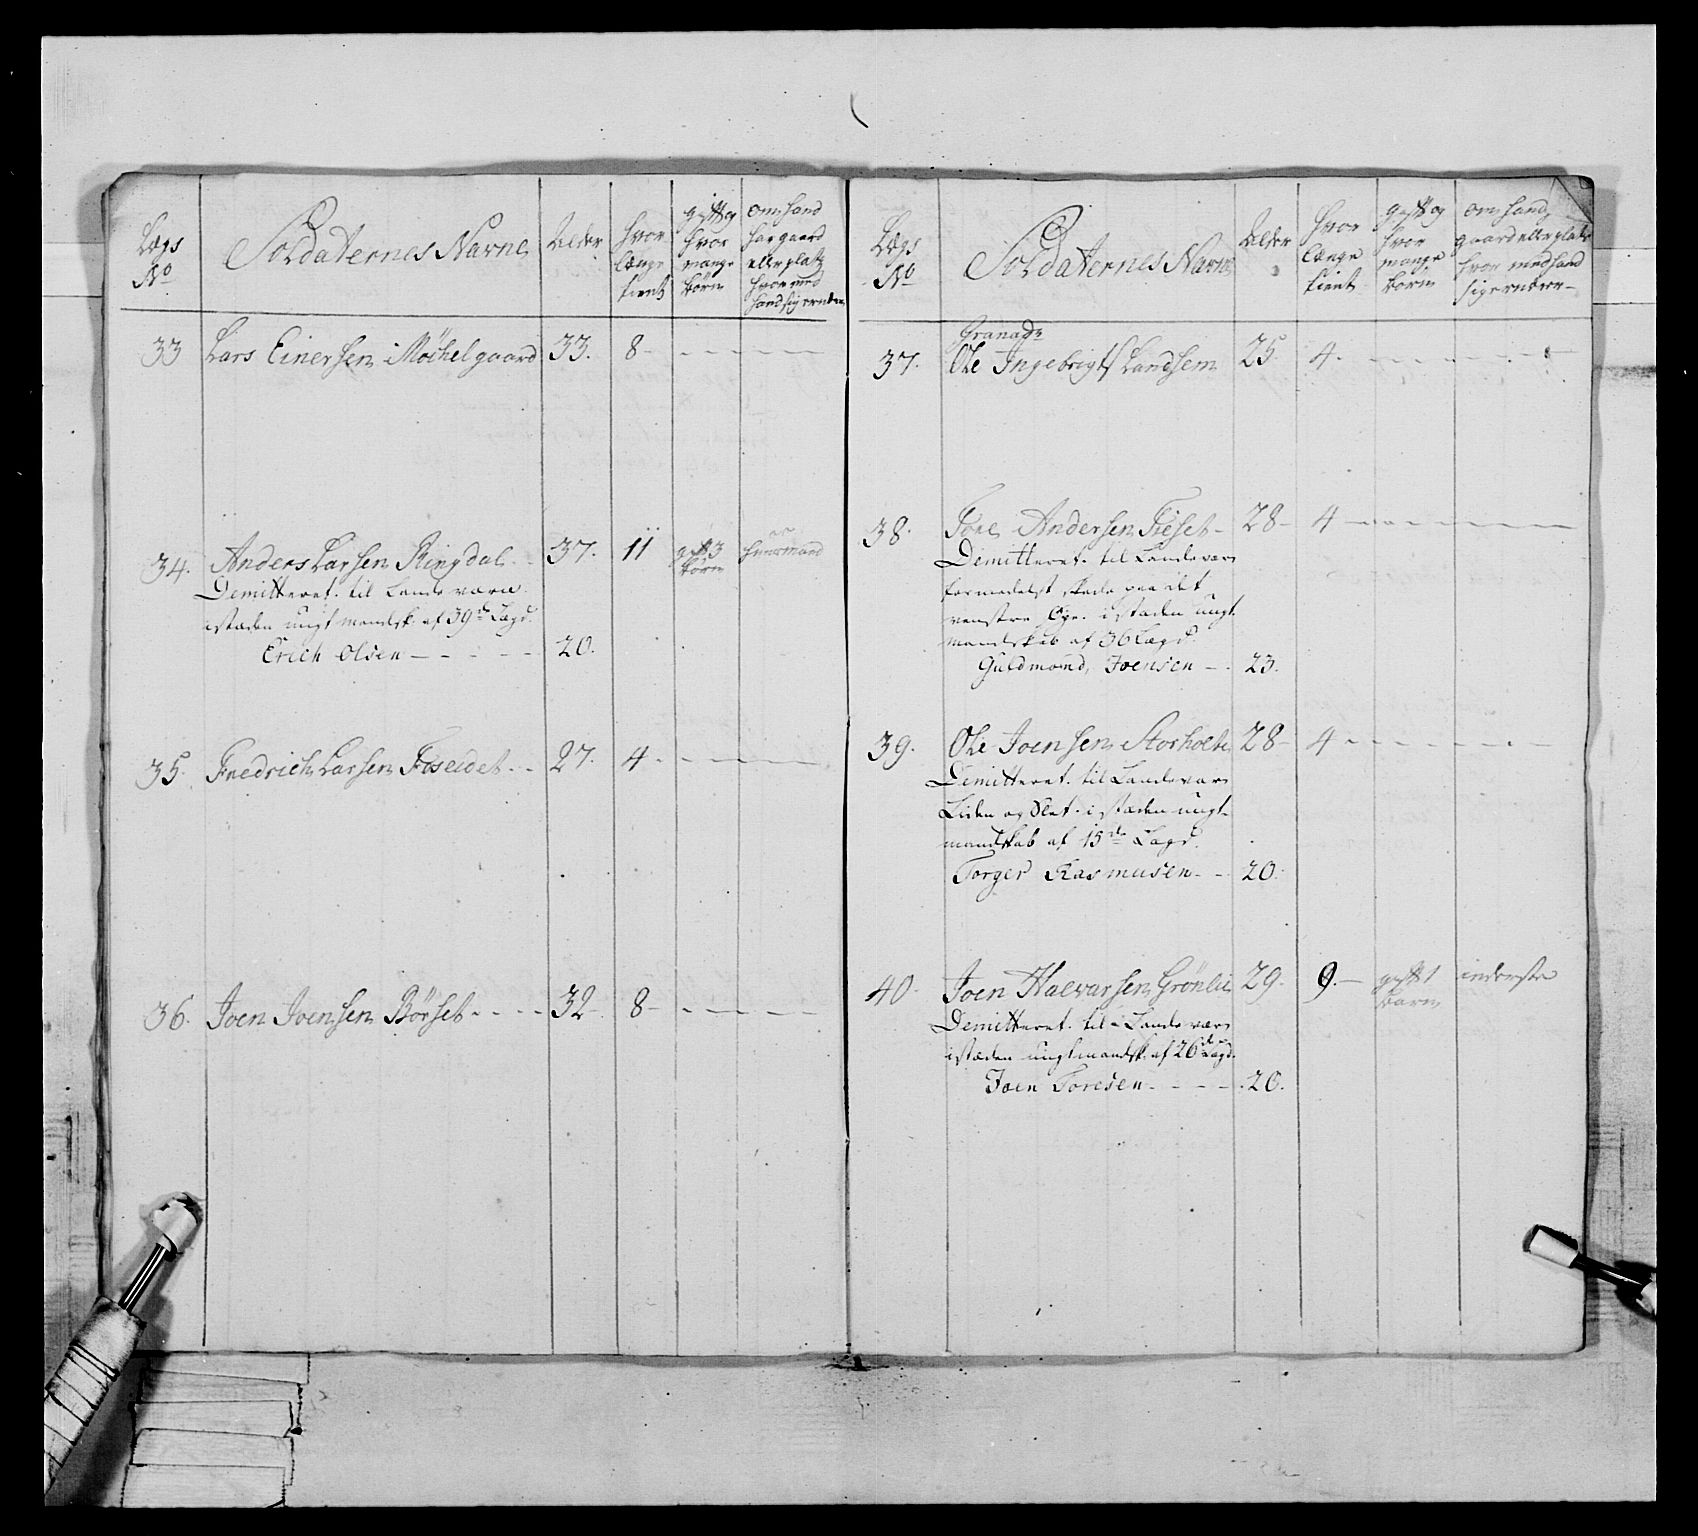 Lægs No
Soldaternes Navne
Alder
hvor længe tient
gift og hvor mange børn
om hand har gaard eller platz hvor med hand sig ernærer
33 Lars Einersen Möchelgaard 33. 8 - - - - -
34. Anders Larsen Ringdal - 37. 11 gift 3 børn er huusmand
Demitteret til Landeværn
istæden ungt mandsk. af 39de Lægd.
Erich Olsen - - - - - 20.
35. Fredrich Larsen Foseidet - - 27. 4 - - - - -
36. Joen Joensen Börset - - - - 32 - 8 - - - - -
Lægs No
Soldaternes Navne
Alder
hvor længe tient
gift og hvor mange børn
om hand gaard eller platz hvor med hand sig ernærer -
Granadr
37. Ole Ingebrigts Landsem 25. 4. - - - - -
38. Tore Andersen Fieset - 28 - 4 - - - - -
Demitteret til Landeværn
formedelst skade paa det
venstre Øye. istæden ungt
mandskab af 36 Lægd.
Guldmand Joensen - - 23.
39. Ole Joensen Storholte 28 - 4 - - - - -
Demitteret til Landeværn
Liden og Slet. istæden ungt
mandskab af 15de Lægd.
Torger Rasmusen - - 20.
40. Joen Halvarsen Grönlie 29. 9. - gift 1 barn inderste
Demitteret til Landeværn
istæden ungt mandsk. af 26de Lægd.
Joen Toresen - - - - 20.